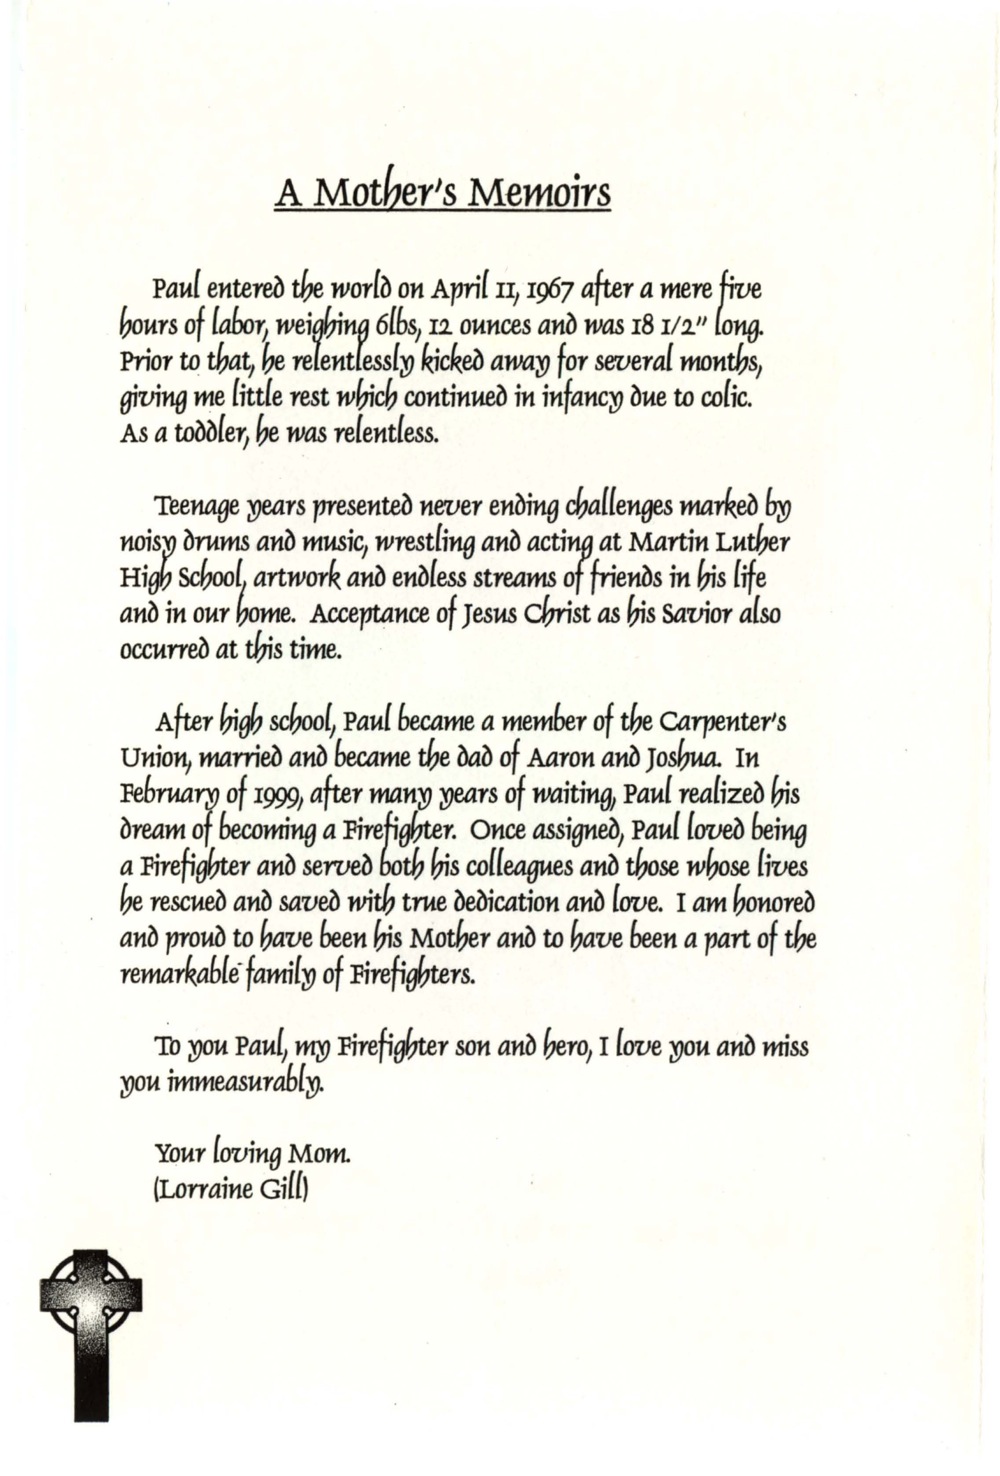 A Mother's Memoirs
Paul entered the world on April 11, 1967 after a mere five
hours of labor, weighing 6lbs, 12 ounces and was 18 1/2" long.
Prior to that, he relentlessly kicked away for several months,
giving me little rest which continued in infancy due to colic.
As a toddler, he was relentless.
Teenage years presented never ending challenges marked by
noisy drums and music, wrestling and acting at Martin Luther
High School, artwork and endless streams of friends in his life
and in our home. Acceptance of Jesus Christ as his Savior also
occurred at this time.
After high school, Paul became a member of the Carpenter's
Union, married and became the dad of Aaron and Joshua. In
February of 1999, after many years of waiting, Paul realized his
dream of becoming a Firefighter. Once assigned, Paul loved being
a Firefighter and served both his colleagues and those whose lives
he rescued and saved with true dedication and love. I am honored
and proud to have been his Mother and to have been a part of the
remarkable family of Firefighters.
To you Paul, my Firefighter son and hero, I love you and miss
you immeasurably.
Your loving Mom.
(Lorraine Gill)